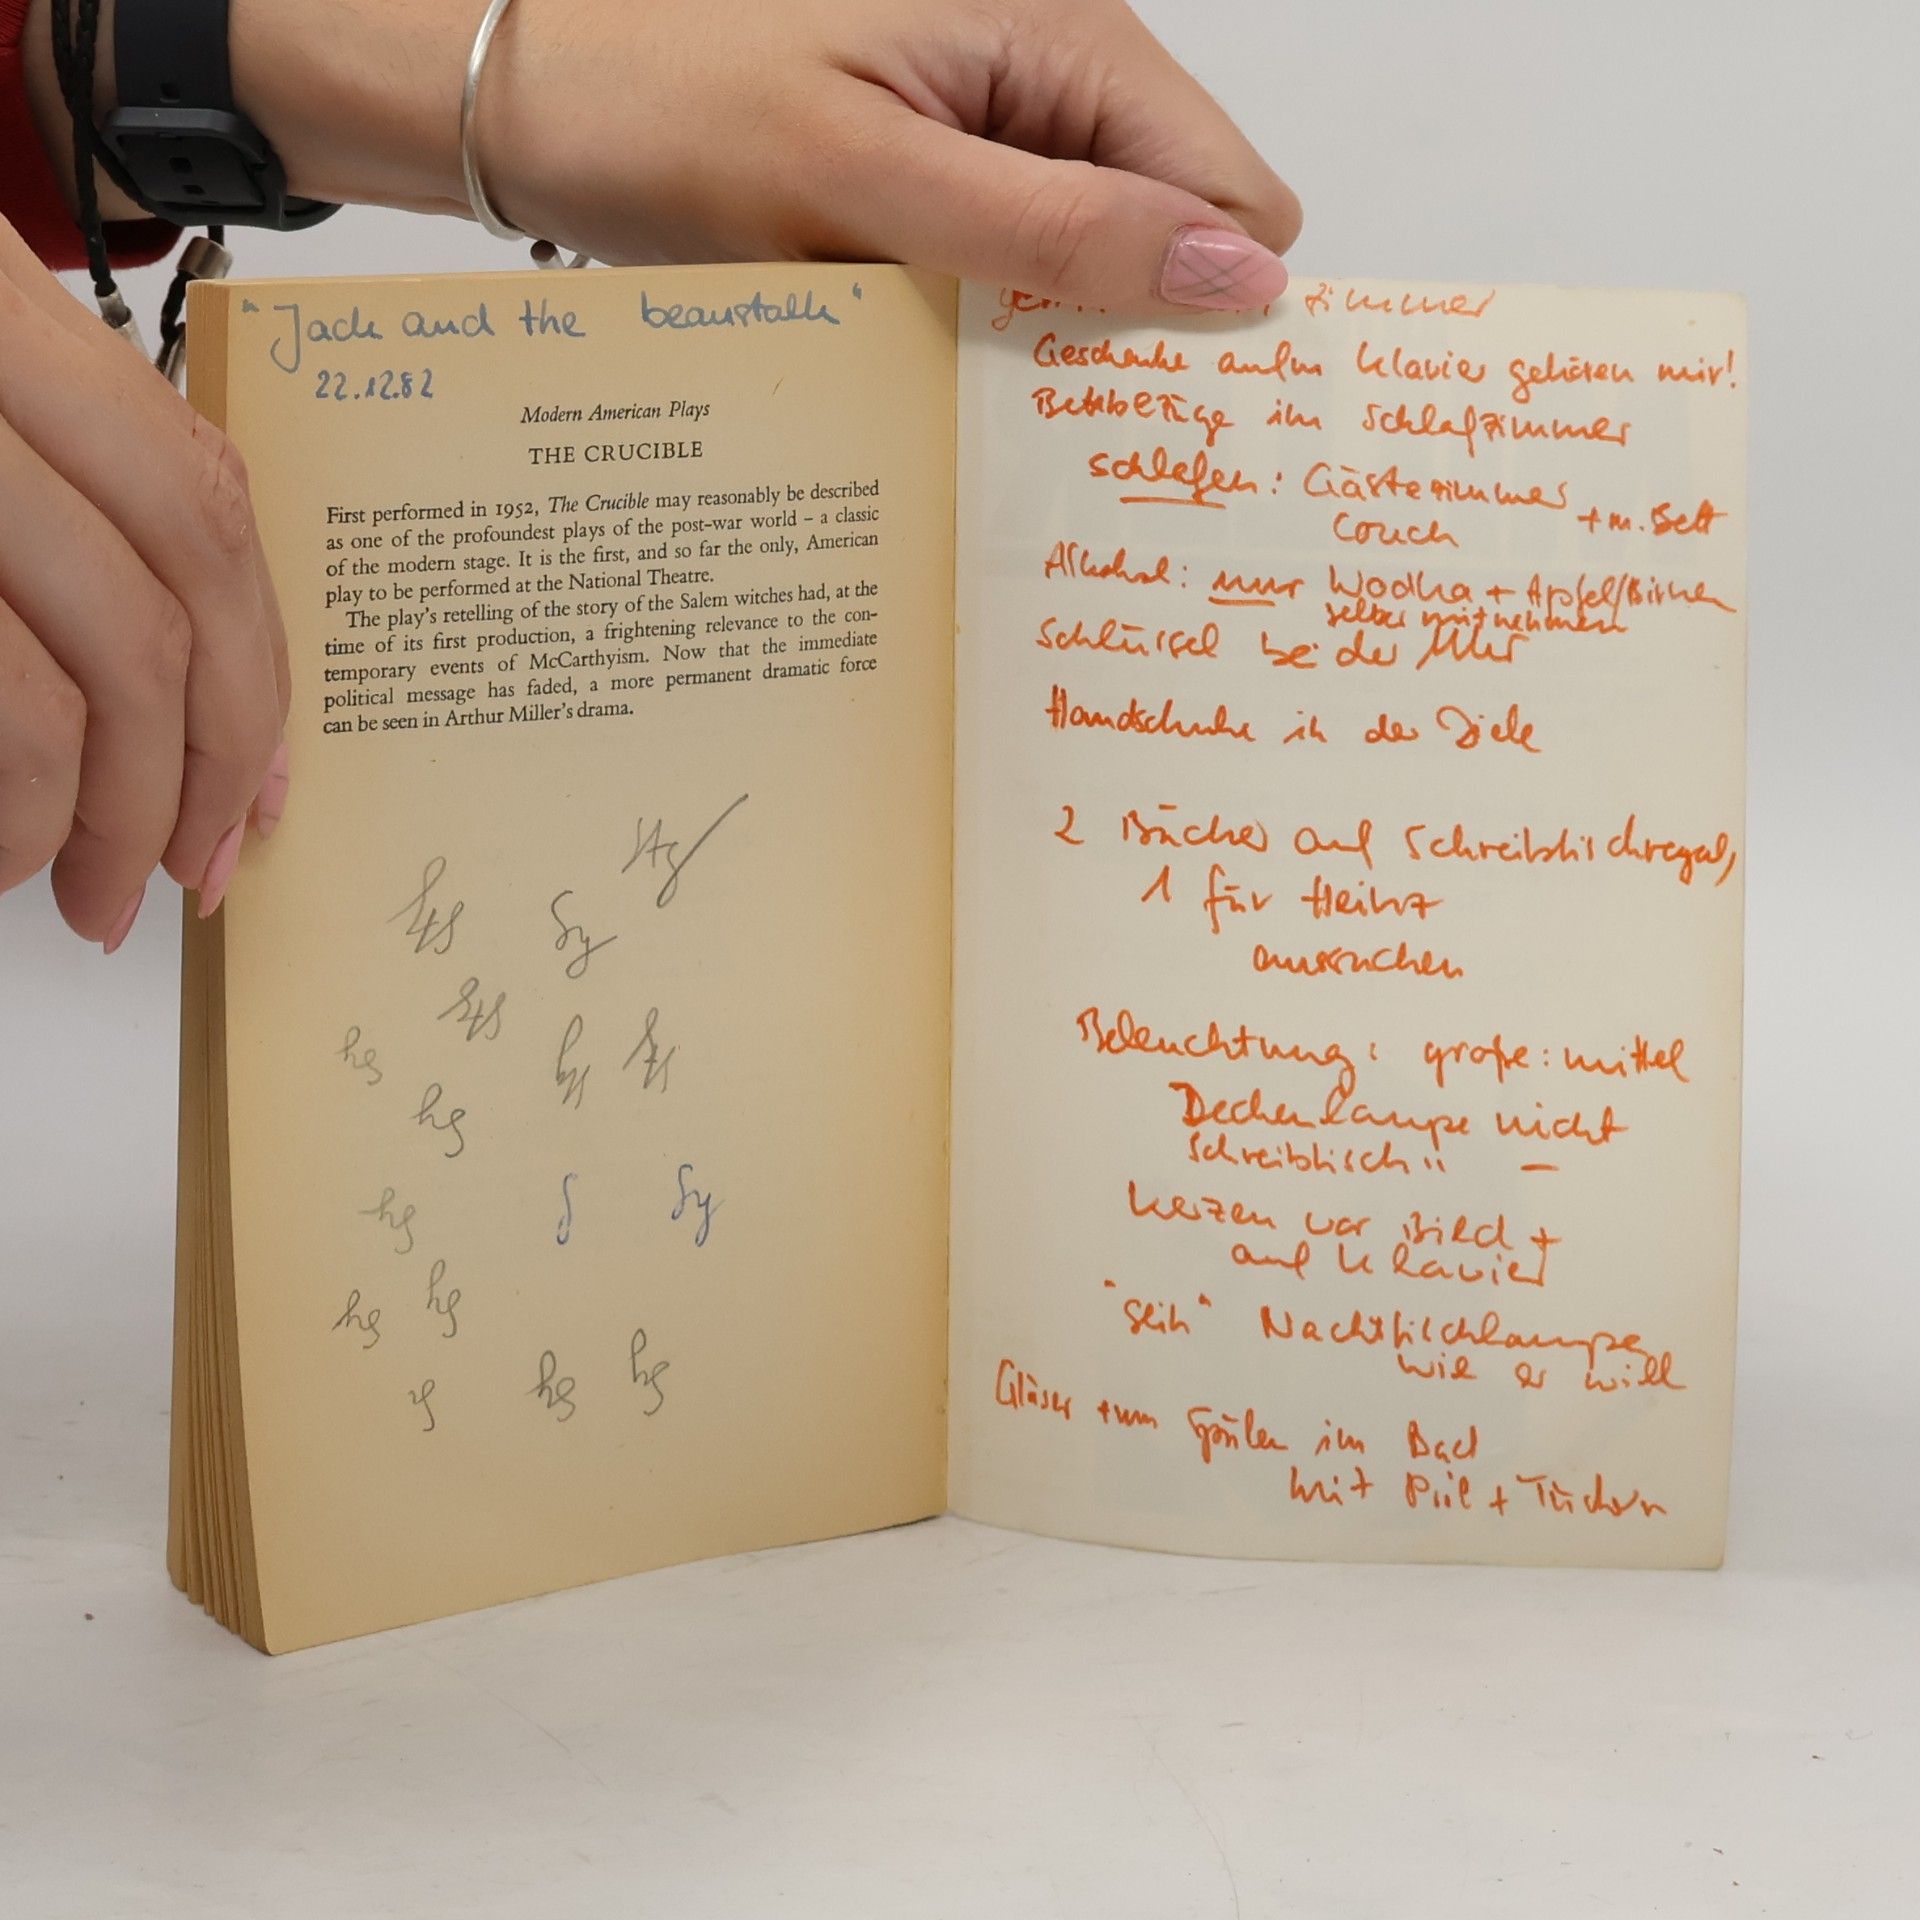 "Jack and the beanstalk"
22.12.82
Modern American Plays
THE CRUCIBLE
First performed in 1952, The Crucible may reasonably be described
as one of the profoundest plays of the post-war world – a classic
of the modern stage. It is the first, and so far the only, American
play to be performed at the National Theatre.
The play's retelling of the story of the Salem witches had, at the
time of its first production, a frightening relevance to the con-
temporary events of McCarthyism. Now that the immediate
political message has faded, a more permanent dramatic force
can be seen in Arthur Miller's drama.
zimmer
Geschenke aufm Klavier gehören mir!
Bettbezüge im Schlafzimmer
schlafen: Gästezimmer
Couch + m. Bett
Alkohol: nur Wodka + Apfel/Birnen
selber mitnehmen
Schlüssel bei der Uhr
Handschuhe in der Diele
2 Bücher auf Schreibtischregal,
1 für Heinz
aussuchen
Beleuchtung: große: mittel
Deckenlampe nicht
Schreibtisch " –
Kerzen vor Bild +
auf Klavier
Nachttischlampe
wie er will
Gläser zum Spülen im Bad
mit Pril + Tüchern